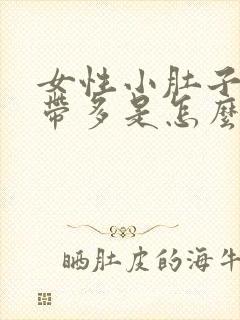 女性小肚子
帶多是怎麼
晒肚皮的海牛